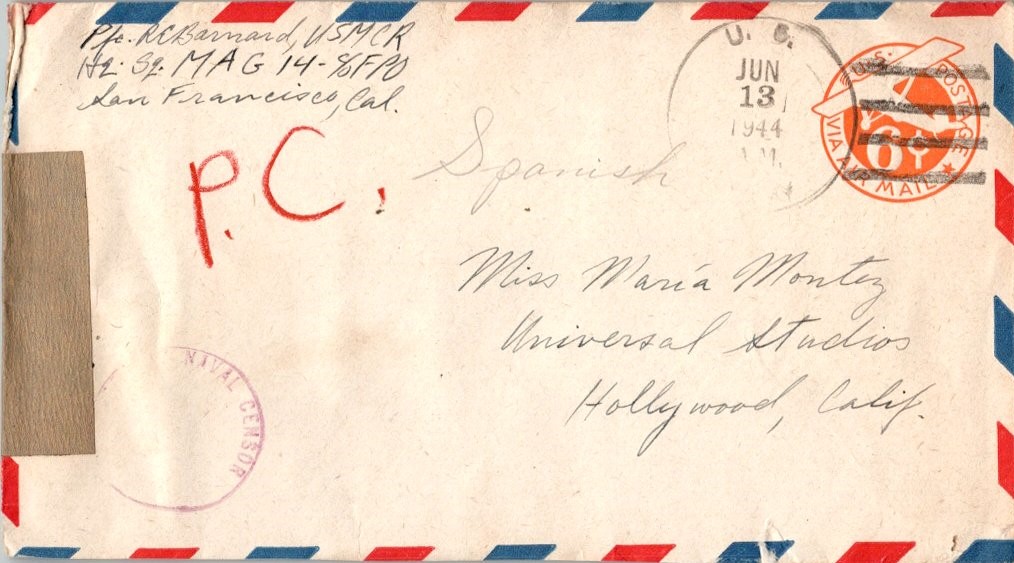 Pfc. R.E. Barnard, USMCR
Hq. Sq. MAG 14 - % FPO
San Francisco, Cal.
P.C.
Spanish
U. S.
JUN
13
1944
U.S. POSTAGE
6¢
VIA AIR MAIL
Miss María Montez
Universal Studios
Hollywood, Calif.
NAVAL CENSOR